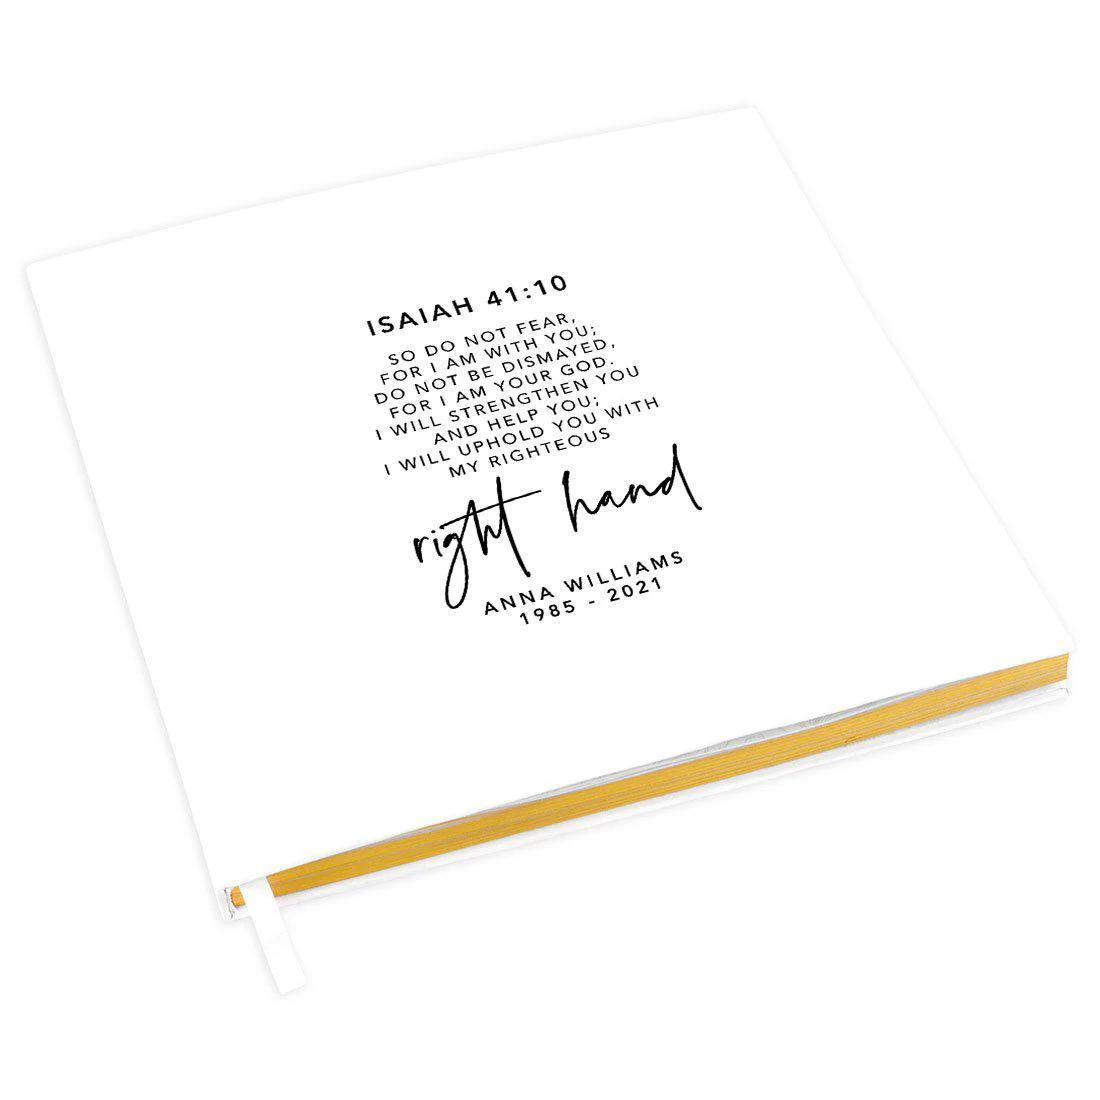 ISAIAH 41:10
SO DO NOT FEAR,
FOR I AM WITH YOU;
DO NOT BE DISMAYED,
FOR I AM YOUR GOD.
I WILL STRENGTHEN YOU
AND HELP YOU;
I WILL UPHOLD YOU WITH
MY RIGHTEOUS
right hand
ANNA WILLIAMS
1985 - 2021